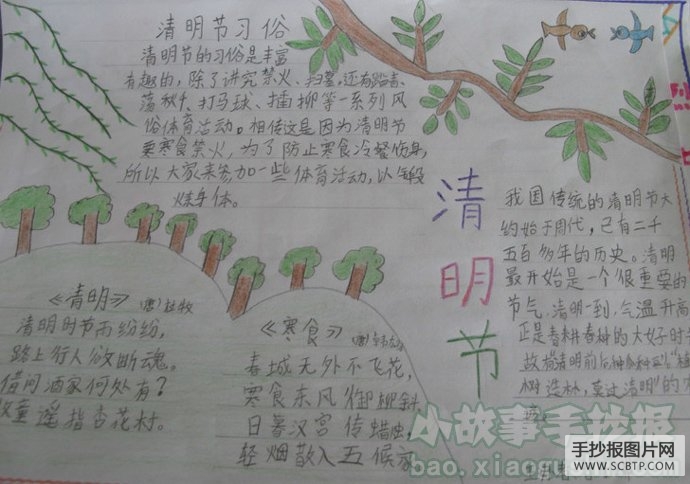 清明节习俗
清明节的习俗是丰富
有趣的，除了讲究禁火、扫墓，还有踏青、
荡秋千、打马球、插柳等一系列风
俗体育活动。相传这是因为清明节
要寒食禁火，为了防止寒食冷餐伤身，
所以大家来参加一些体育活动，以锻
炼身体。
清
明
节
我国传统的清明节大
约始于周代，已有二千
五百多年的历史。清明
最开始是一个很重要的
节气，清明一到，气温升高
正是春耕春种的大好时
故有"清明前后，种瓜种豆"。"植
树造林，莫过清明"的
《清明》（唐）杜牧
清明时节雨纷纷，
路上行人欲断魂。
借问酒家何处有？
牧童遥指杏花村。
《寒食》
春城无处不飞花，
寒食东风御柳斜
日暮汉宫传蜡烛，
轻烟散入五侯家
小故事手抄报
bao.xiaogu
手抄报图片网
WWW.SCBTP.COM